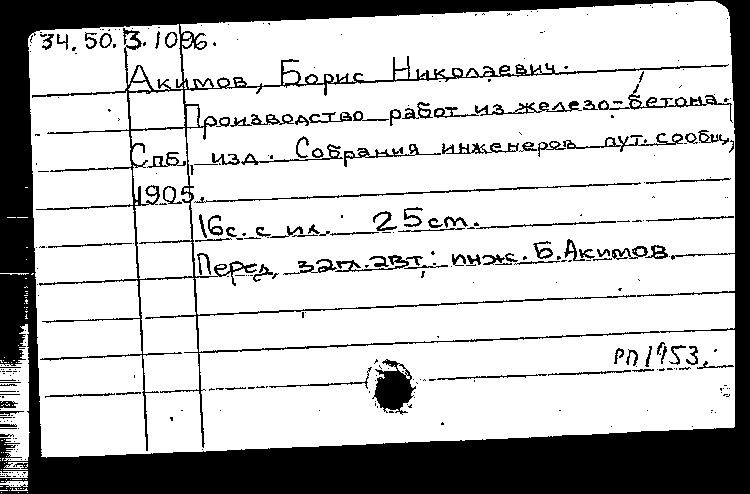 34.50.3.1096.
Акимов, Борис Николаевич.
Производство работ из железо-бетона.
Спб., изд. Собрания инженеров пут. сообщ.,
1905.
16с. с ил. 25 cm.
Перед загл. авт.: инж. Б. Акимов.
РП 1953.